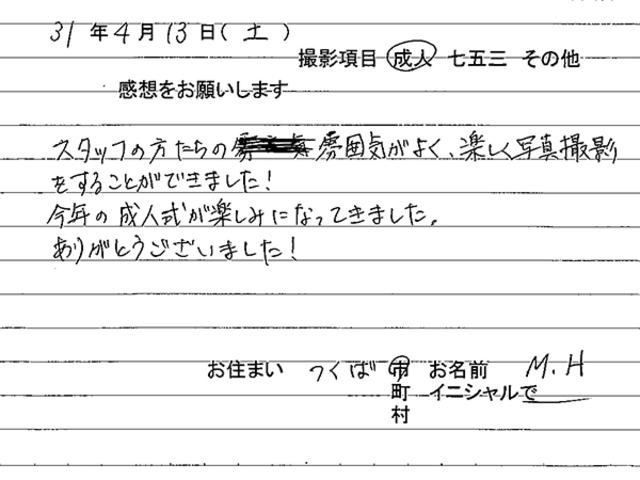 31年4月13日(土)
撮影項目 成人 七五三 その他
感想をお願いします
スタッフの方たちの雰囲気がよく、楽しく写真撮影
をすることができました!
今年の成人式が楽しみになってきました。
ありがとうございました!
お住まい つくば 市 お名前 M.H
町 イニシャルで
村